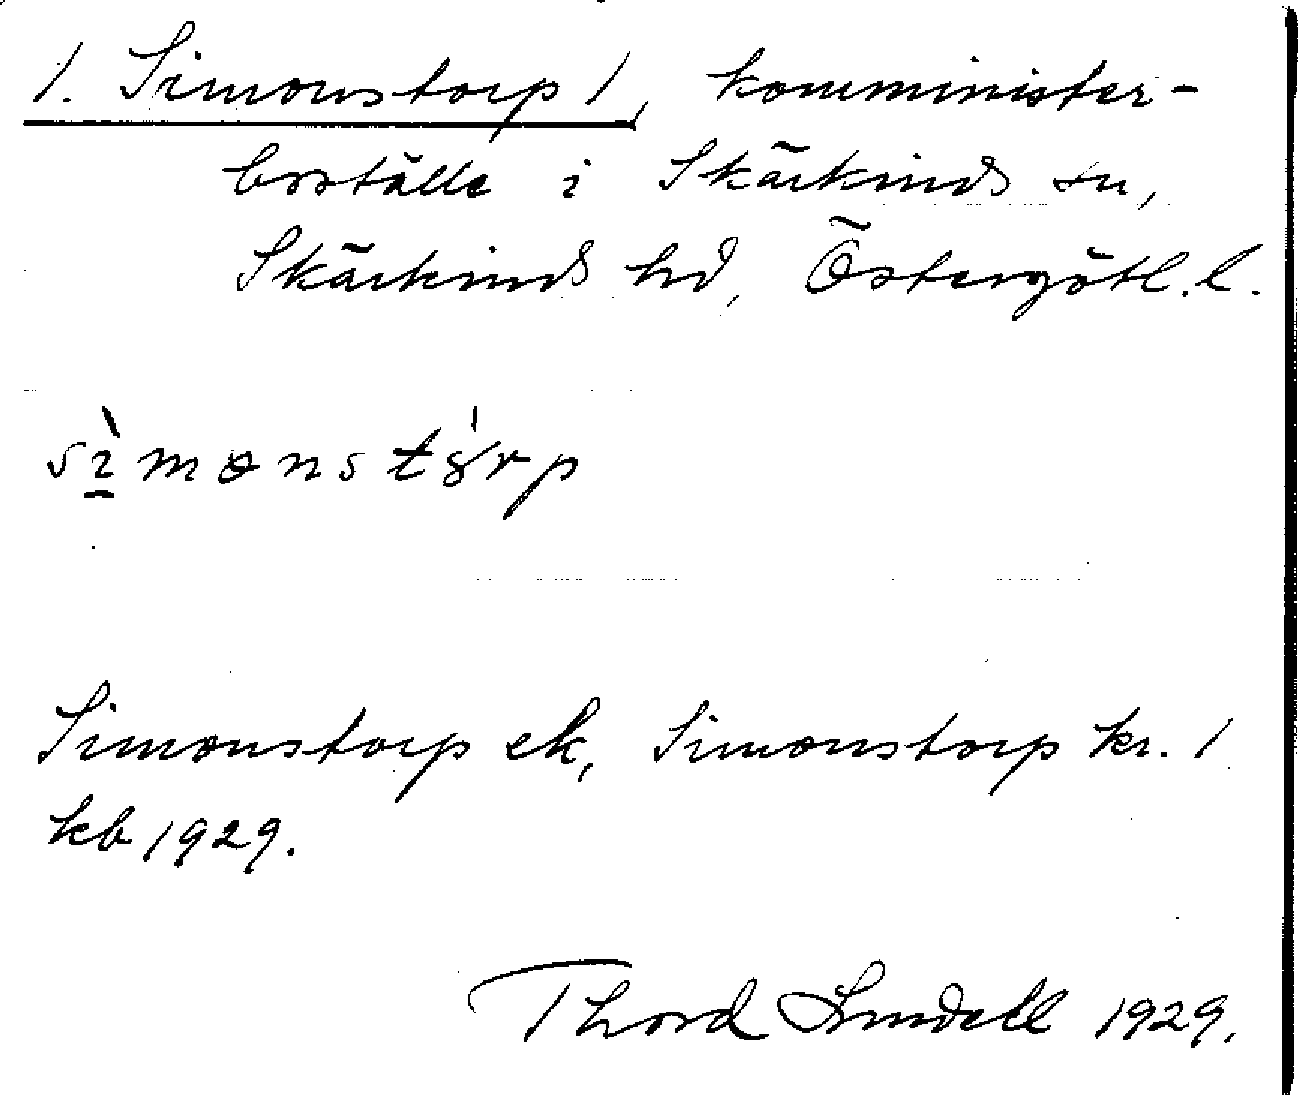 1. Simonstorp 1, komminister-
boställe i Skärkinds sn,
Skärkinds hd, Östergötl. l.
sìmɷnstȣ́rp
Simonstorp ek, Simonstorp kr. 1
kb 1929.
Thord Lindell 1929.